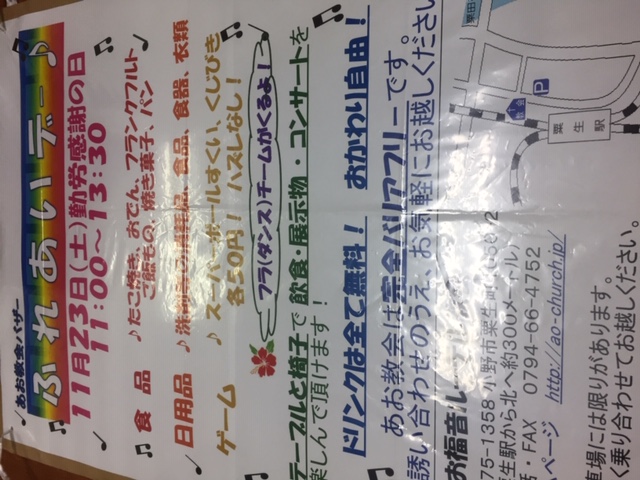 あお教会バザー
ふれあいデー♪
11月23日(土)勤労感謝の日
11:00～13:30
食品 ♪たこ焼き、おでん、フランクフルト
ご飯もの、焼き菓子、パン
日用品 ♪洗剤等の消耗品、食品、食器、衣類
ゲーム ♪スーパーボールすくい、くじびき
各50円! ハズレなし!
フラ(ダンス)チームがくるよ!
テーブルと椅子で飲食・展示物・コンサートを
楽しんで頂けます!
ドリンクは全て無料! おかわり自由!
あお教会は完全バリアフリーです。
誘い合わせのうえ、お気軽にお越しください
お福音ルーテル
75-1358 小野市粟生町
生駅から北へ約300メートル)
・FAX 0794-66-4752
ページ http://ao-church.jp/
車場には限りがあります。
く乗り合わせてお越し
粟田
P
教会
粟生駅